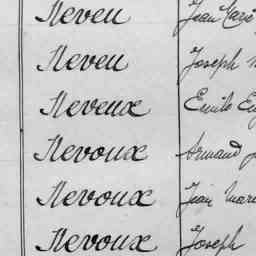 Neveu Jean Marie
Neveu Joseph
Neveux Emile
Nevoux Armand
Nevoux Jean Marie
Nevoux Joseph